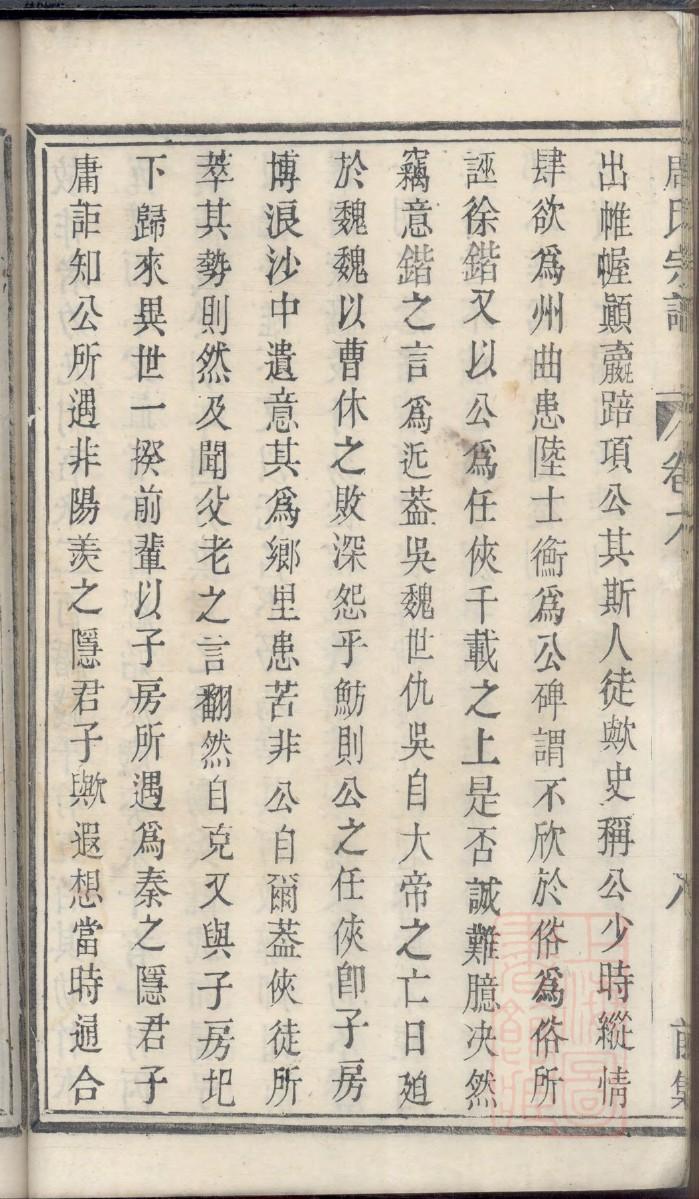 周氏宗譜 卷六 八 前集
出帷幄顚嬴踣項公其斯人徒歟史稱公少時縱情
肆欲爲州曲患陸士衡爲公碑謂不欣於俗爲俗所
誣徐鍇又以公爲任俠千載之上是否誠難臆决然
竊意鍇之言爲近葢吳魏世仇吳自大帝之亡日廹
於魏魏以曹休之敗深怨乎魴則公之任俠卽子房
博浪沙中遺意其爲鄉里患苦非公自爾葢俠徒所
萃其勢則然及聞父老之言翻然自克又與子房圯
下歸來異世一揆前輩以子房所遇爲秦之隱君子
庸詎知公所遇非陽羨之隱君子歟遐想當時通合